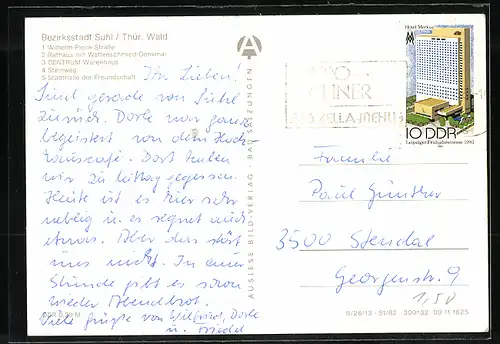 Bezirksstadt Suhl / Thür. Wald
1 Wilhelm-Pieck-Straße
2 Rathaus mit Waffenschmied-Denkmal
3 CENTRUM Warenhaus
4 Steinweg
5 Stadthalle der Freundschaft
Ihr Lieben.
Sind gerade von Suhl
zurück. Dorle war ganz
begeistert von dem Hoch-
hauscafé. Dort haben
wir zu Mittag gegessen.
Heute ist es hier sehr
neblig u. es regnet auch
etwas. Aber das stört
uns nicht. In einer
Stunde gibt es schon
wieder Abendbrot.
Viele Grüße von Wilfried, Dorle
u. Friedel
AUSLESE BILD-VERLAG · BAD SALZUNGEN
Hotel Merkur
10 DDR
Leipziger Frühjahrsmesse 1982
ZELLA-MEHLIS
Familie
Paul Günther
3500 Stendal
Georgenstr. 9
1,50
300132 09 11 1825